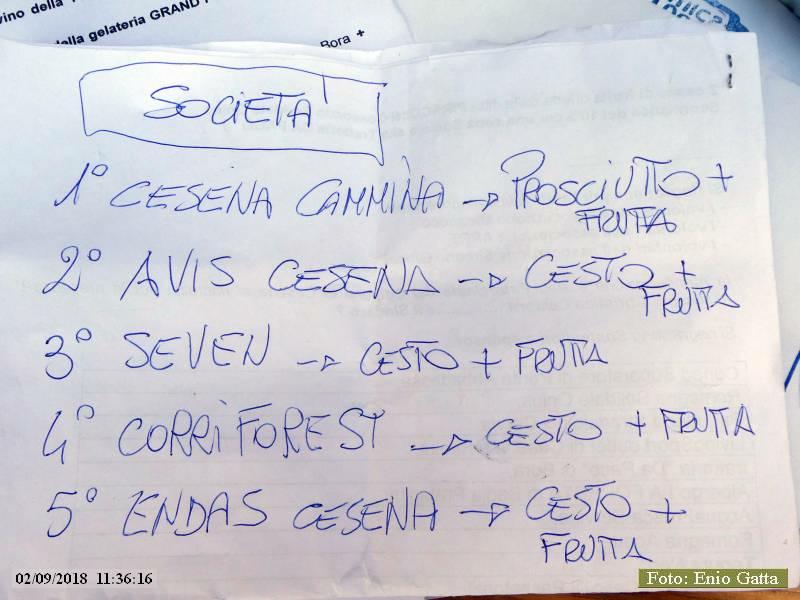 vino della
della gelateria GRAND
Bora +
SOCIETA'
1° CESENA CAMMINA → PROSCIUTTO +
FRUTTA
2° AVIS CESENA → CESTO +
FRUTTA
3° SEVEN → CESTO + FRUTTA
4° CORRIFOREST → CESTO + FRUTTA
5° ENDAS CESENA → CESTO +
FRUTTA
02/09/2018 11:36:16
Foto: Enio Gatta